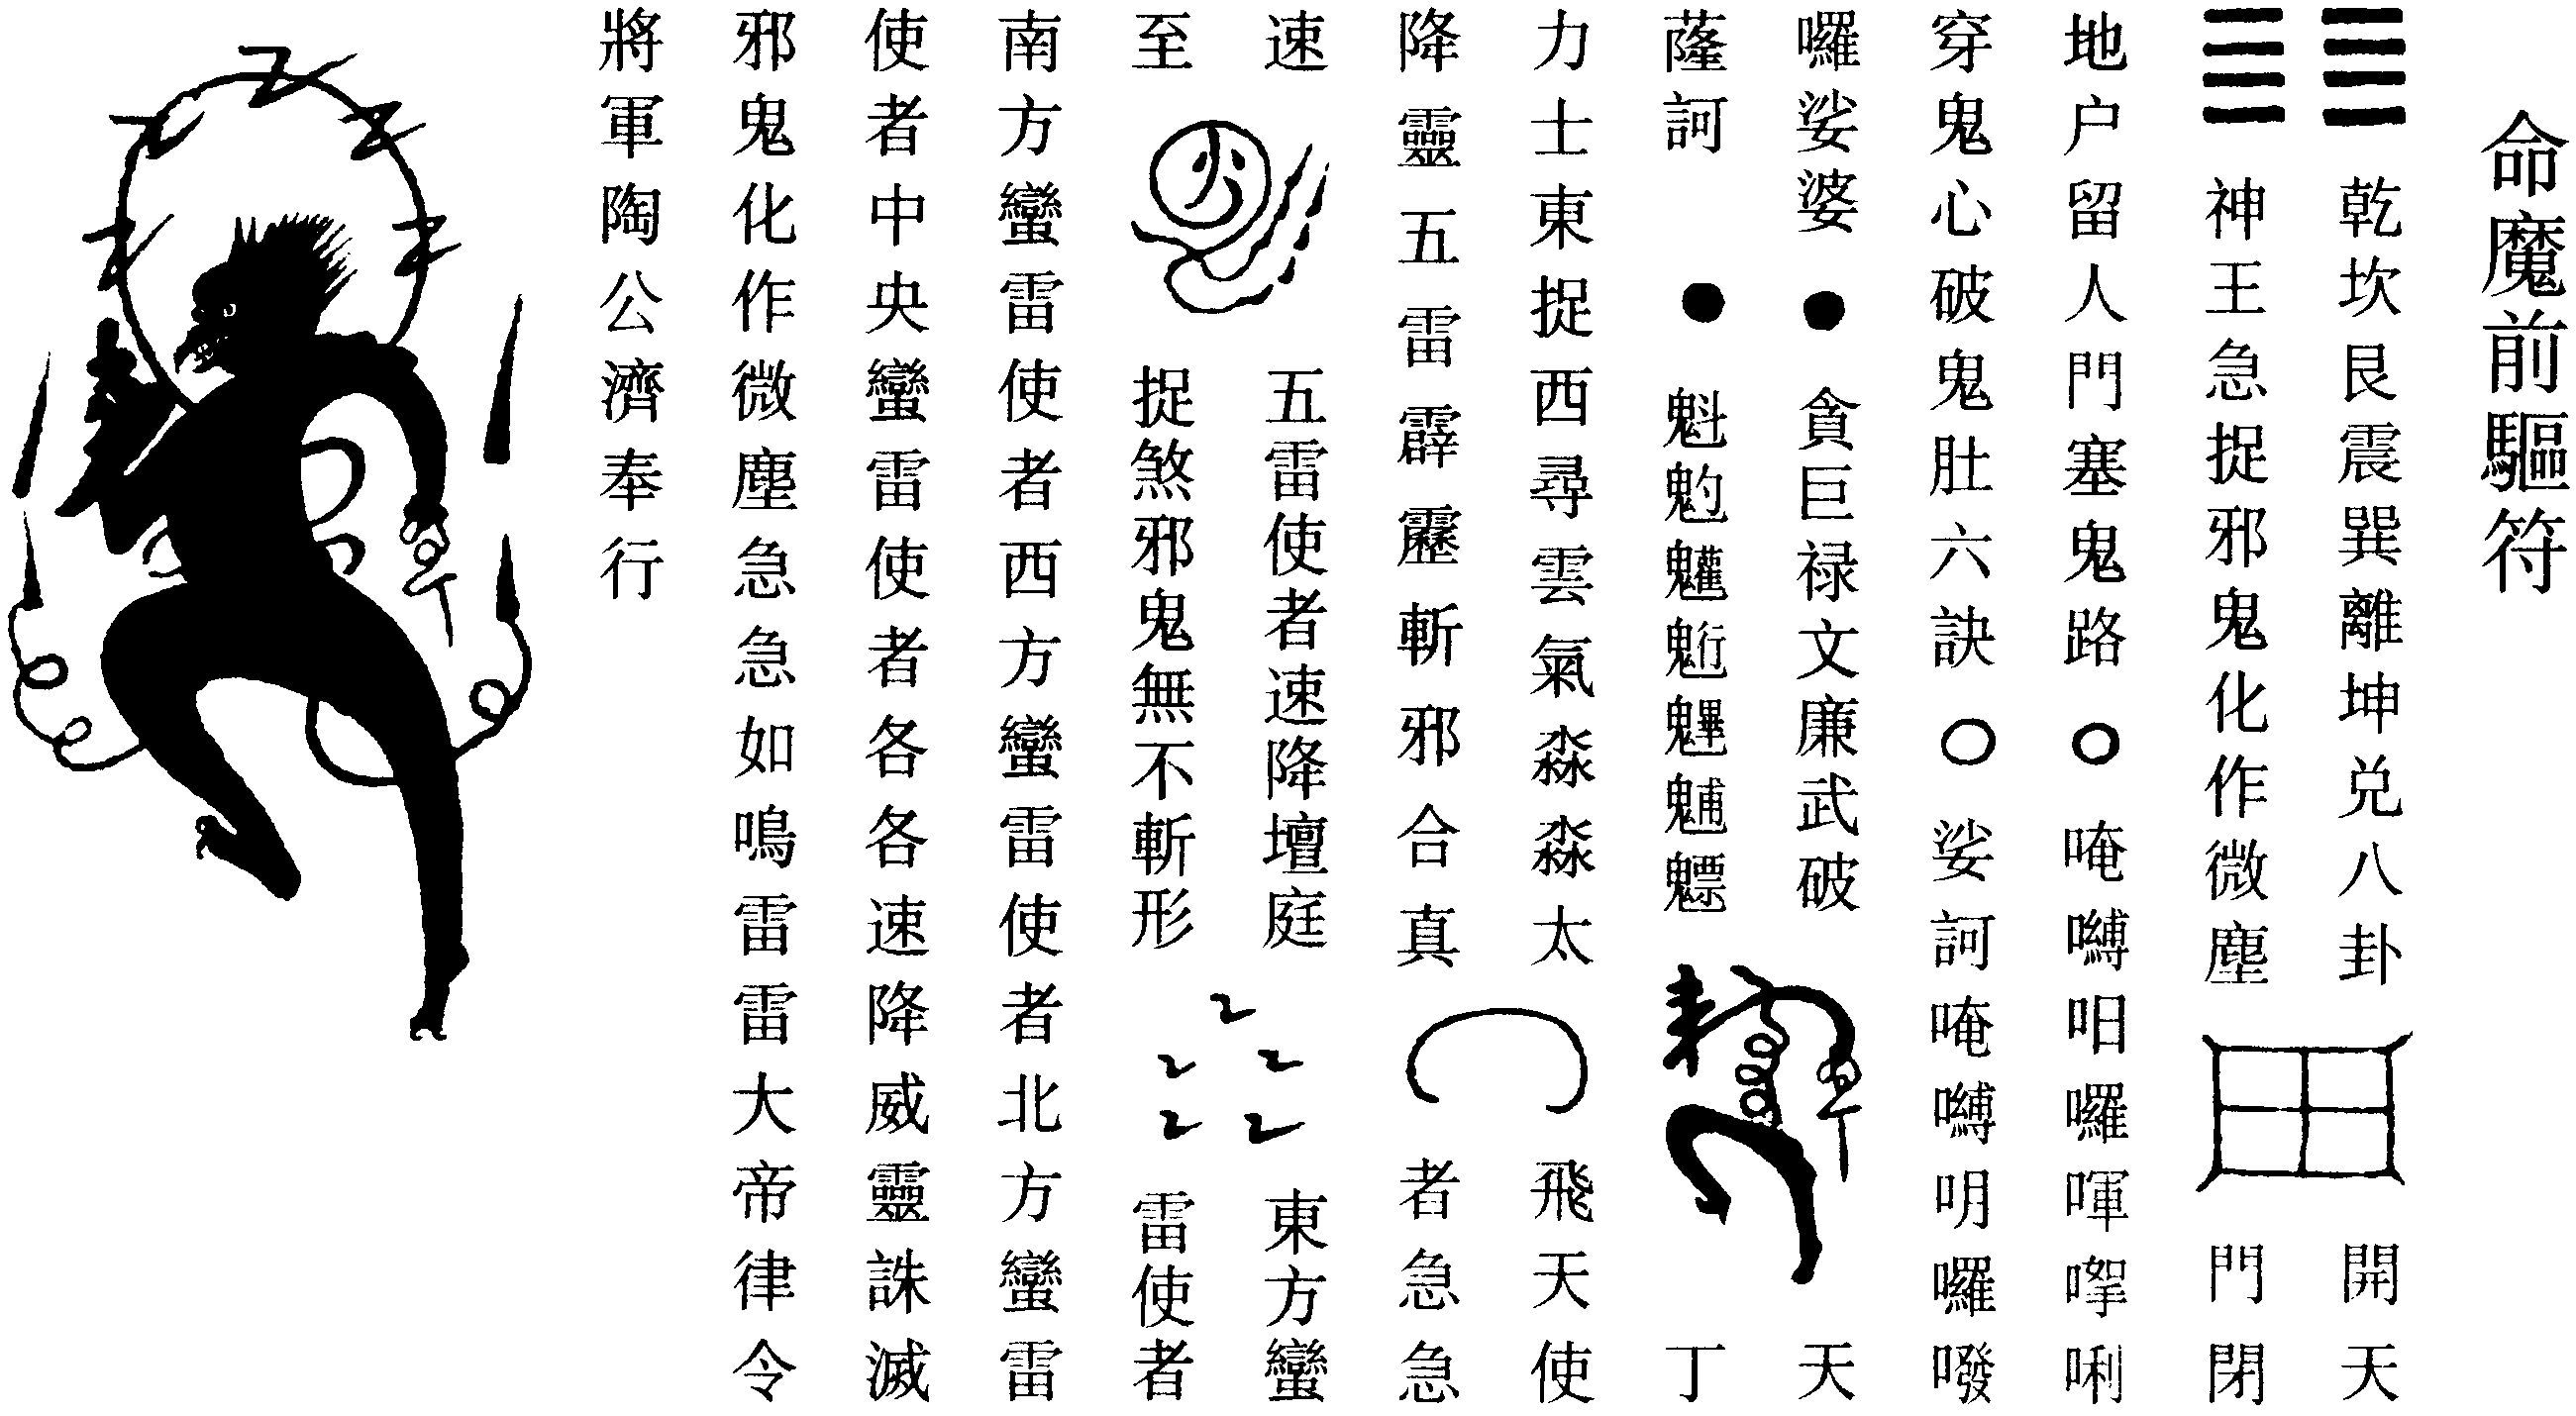 命魔前驅符
乾坎艮震巽離坤兌八卦
神王急捉邪鬼化作微塵
開天
門閉
地户留人門塞鬼路
穿鬼心破鬼肚六訣
唵嚩囉喗唎
娑訶唵嚩囉
囉娑婆
薩訶
貪巨禄文廉武破
魁魒
天
丁
力士東捉西尋雲氣淼淼太
降靈五雷霹靂斬邪合真
飛天使
者急急
速
至
五雷使者速降壇庭
捉煞邪鬼無不斬形
東方蠻
雷使者
南方蠻雷使者西方蠻雷使者北方蠻雷
使者中央蠻雷使者各各速降威靈誅滅
邪鬼化作微塵急急如鳴雷雷大帝律令
將軍陶公濟奉行